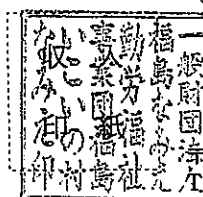 一般財団法人
福島なみえ
勤労福祉
事業団福島
いこいの村
なみえ印
収入
印紙